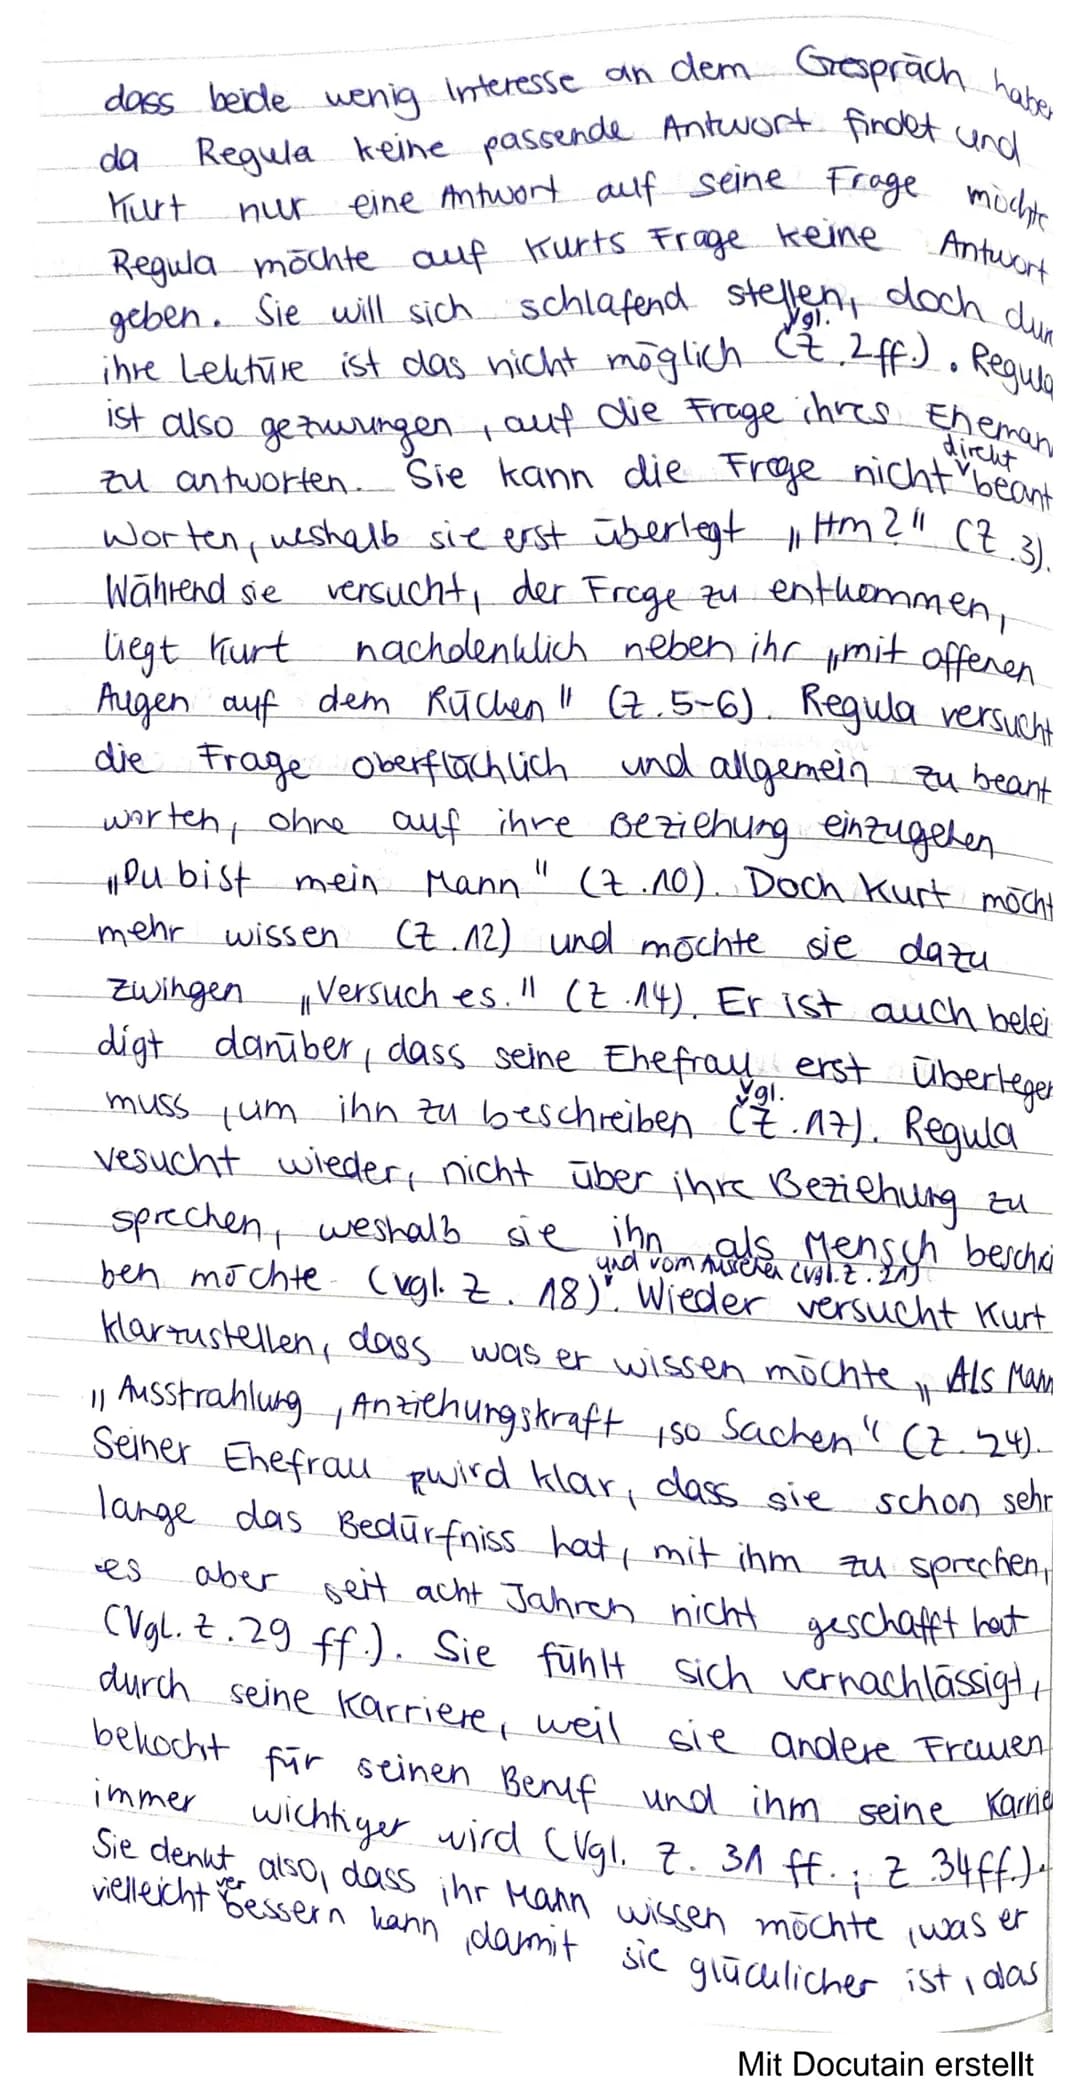 dass beide wenig Interesse an dem Gespräch haben
da Regula keine passende Antwort findet und
Kurt nur eine Antwort auf seine Frage möchte
Regula möchte auf Kurts Frage keine Antwort
geben. Sie will sich schlafend stellen, doch dur
ihre Lektüre ist das nicht möglich (vgl. Z. 2ff.). Regula
ist also gezwungen, auf die Frage ihres Eheman
zu antworten. Sie kann die Frage nicht direkt beant
worten, weshalb sie erst überlegt „Hm?" (Z.3).
Während sie versucht, der Frage zu entkommen,
liegt Kurt nachdenklich neben ihr „mit offenen
Augen auf dem Rücken" (Z.5-6). Regula versucht
die Frage oberflächlich und allgemein zu beant
worten, ohne auf ihre Beziehung einzugehen
„Du bist mein Mann" (Z.10). Doch Kurt möcht
mehr wissen (Z.12) und möchte sie dazu
zwingen „Versuch es." (Z.14). Er ist auch belei
digt darüber, dass seine Ehefrau erst überlegen
muss, um ihn zu beschreiben (vgl. Z.17). Regula
vesucht wieder, nicht über ihre Beziehung zu
sprechen, weshalb sie ihn als Mensch beschrei
ben möchte (vgl. Z. 18) und vom Aussehen (vgl. Z. 21). Wieder versucht Kurt
klarzustellen, dass was er wissen möchte „Als Mann
„Ausstrahlung, Anziehungskraft, so Sachen" (Z. 24).
Seiner Ehefrau wird klar, dass sie schon sehr
lange das Bedürfniss hat, mit ihm zu sprechen,
es aber seit acht Jahren nicht geschafft hat
(Vgl. Z. 29 ff.). Sie fühlt sich vernachlässigt,
durch seine Karriere, weil sie andere Frauen
bekocht für seinen Beruf und ihm seine Karrie
immer wichtiger wird (Vgl. Z. 31 ff.; Z 34ff.).
Sie denkt also, dass ihr Mann wissen möchte, was er
vielleicht verbessern kann, damit sie glücklicher ist, das
Mit Docutain erstellt